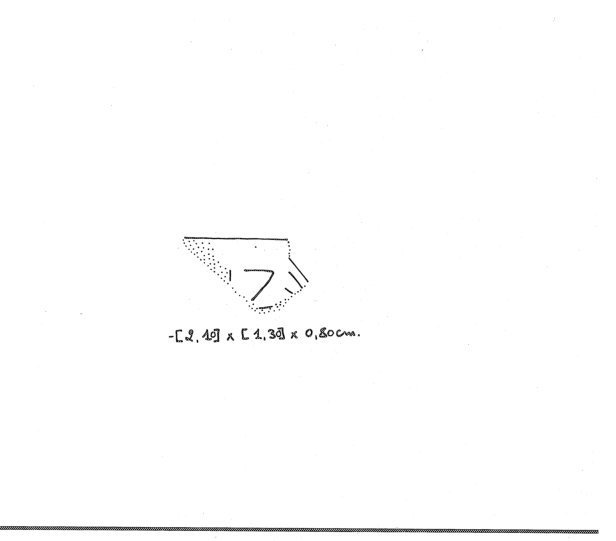 -[2,10] x [1,30] x 0,80cm.